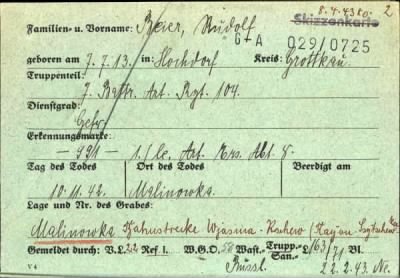 8.4.43 2
Familien- u. Vorname: Beier, Rudolf Skizzenkarte
G-A 029/0725
geboren am 7.7.13. in: Hochdorf Kreis: Grottkau
Truppenteil:
7. Battr. Art. Rgt. 104.
Dienstgrad:
Gefr.
Erkennungsmarke:
- 991 - 1./le. Art. Ers. Abt. 8.
Tag des Todes Ort des Todes Beerdigt am
10.11.42. Malinowka
Lage und Nr. des Grabes:
Malinowka Bahnstrecke Wjasma-Rshew
Gemeldet durch: V.L. 22 Ref. I. W.G.O. 58 Wast.- Trupp.- San.- L 163/71 Bl.
V 4 Russl. 22.2.43. Ne.